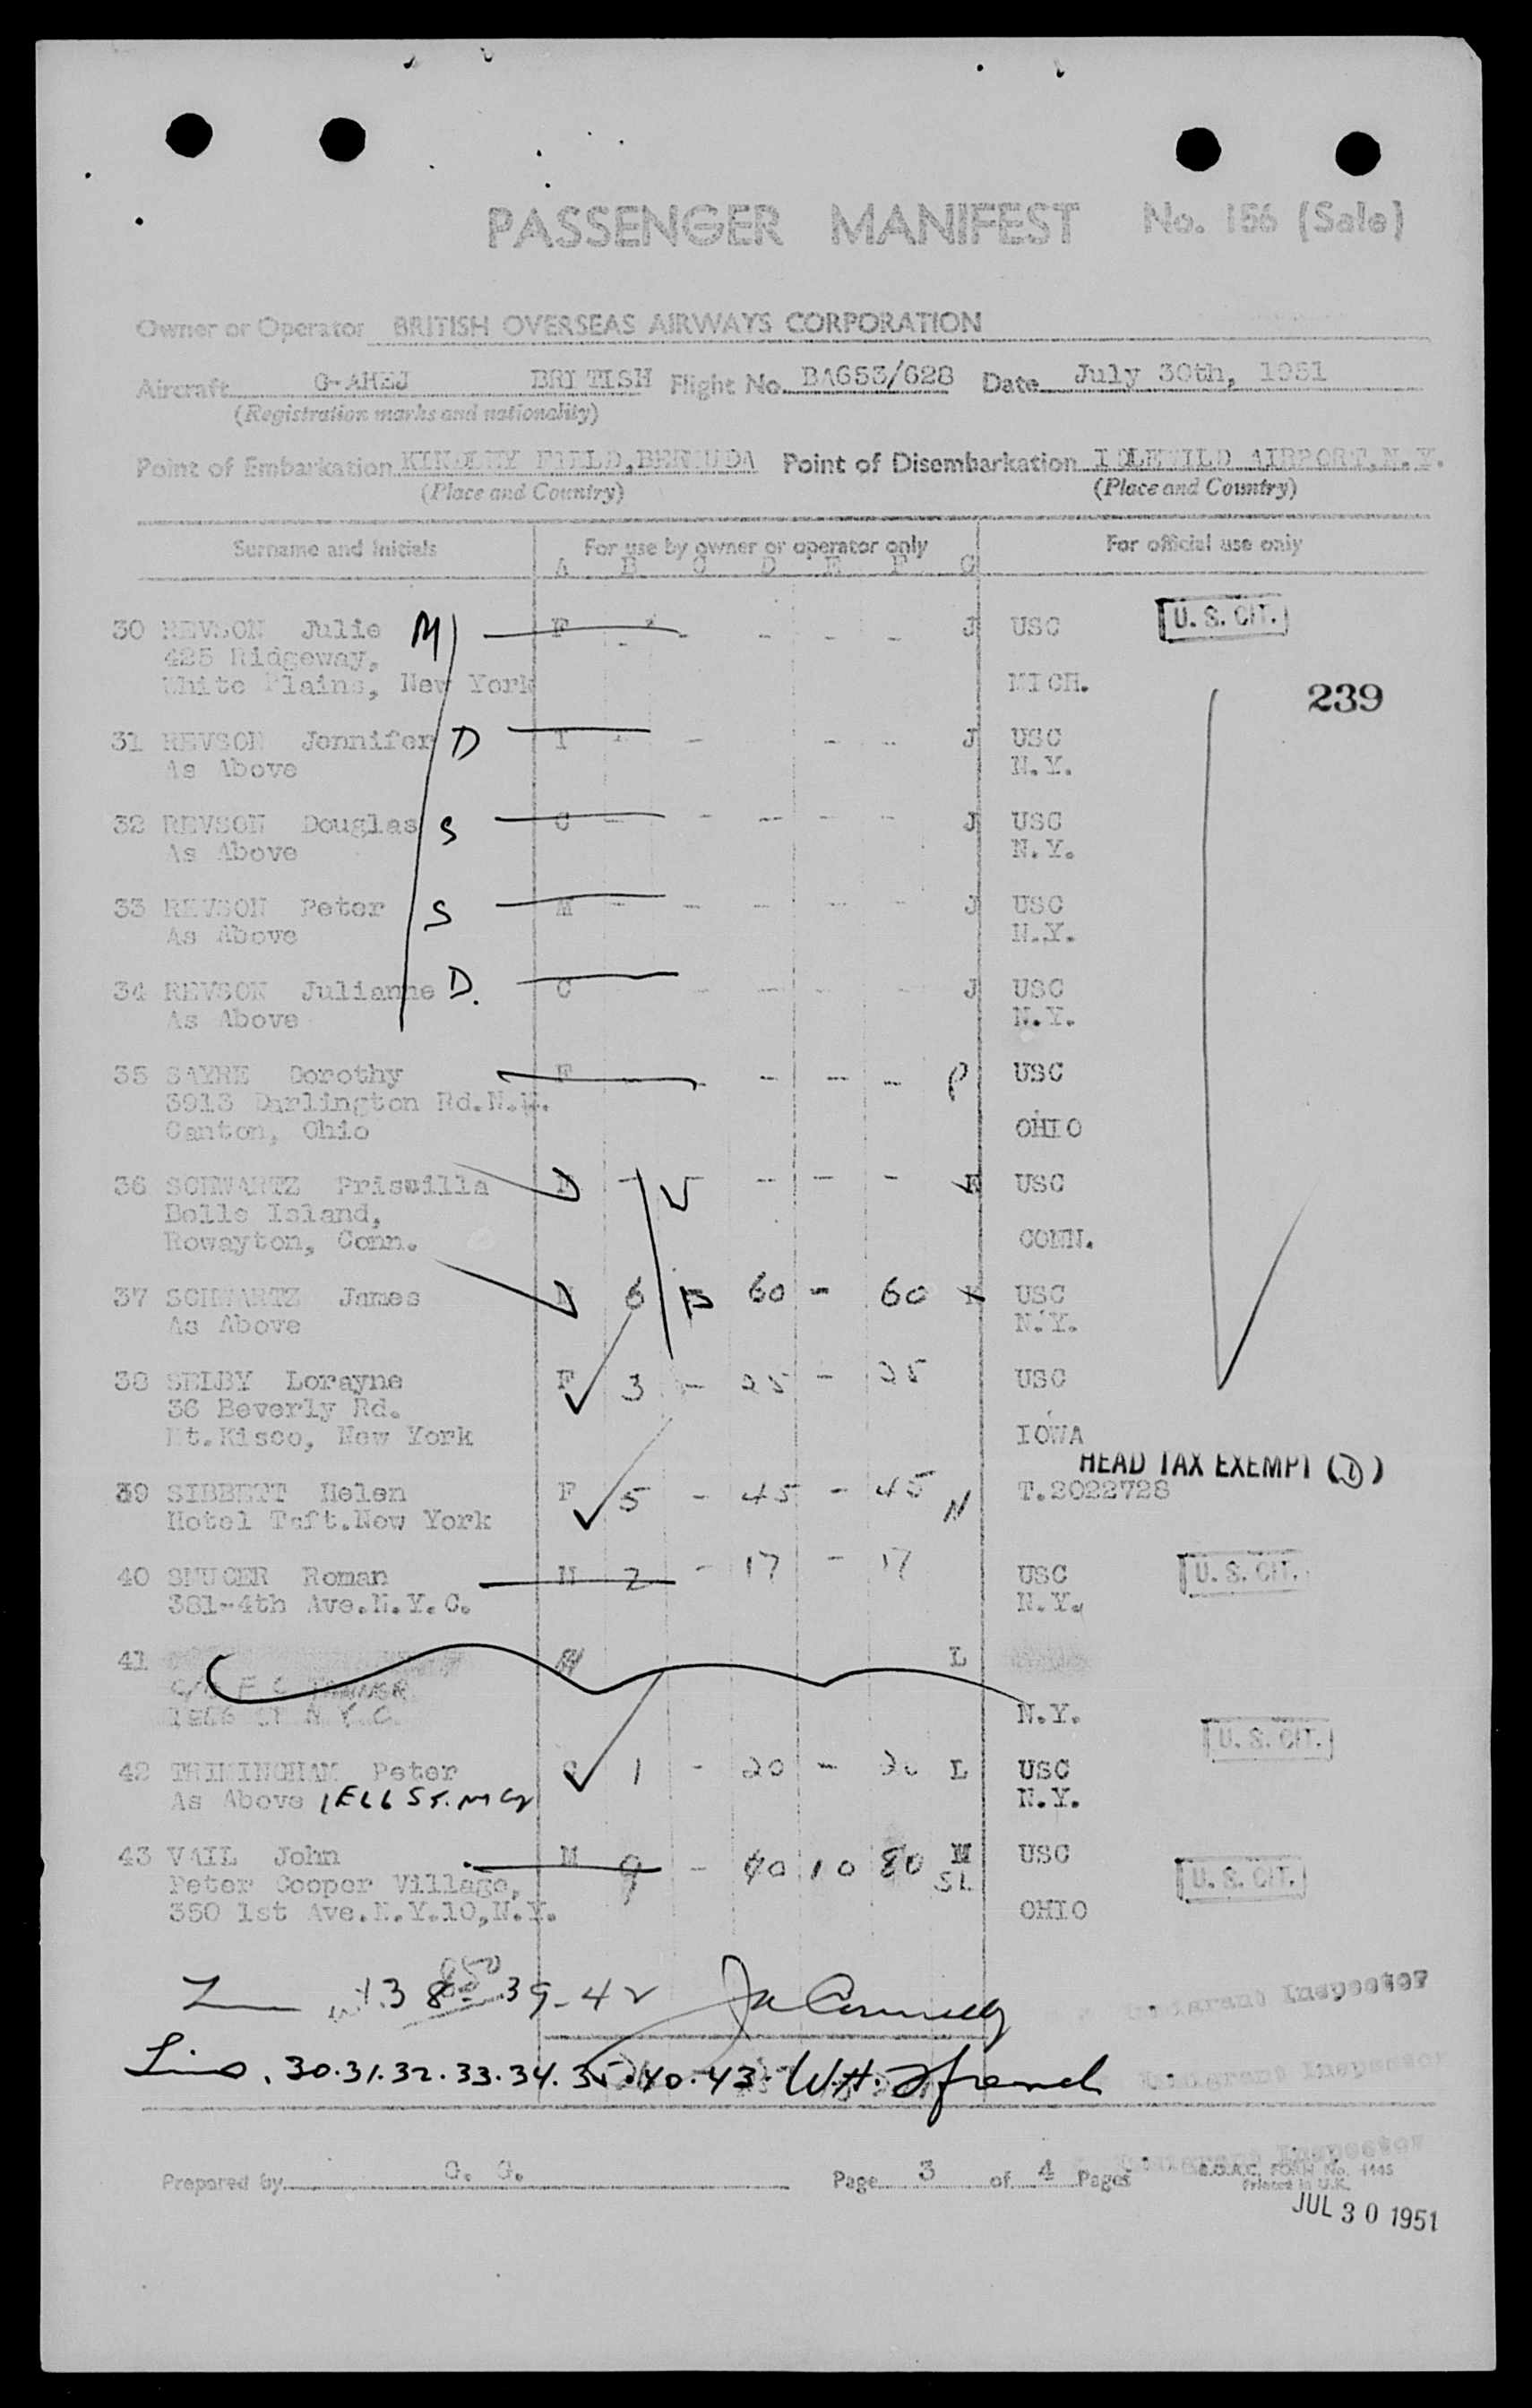 PASSENGER MANIFEST No. 156 (Sale)
Owner or Operator BRITISH OVERSEAS AIRWAYS CORPORATION
Aircraft G-AHEJ BRITISH Flight No. BA653/628 Date July 30th, 1951
(Registration marks and nationality)
Point of Embarkation KINDLEY FIELD, BERMUDA Point of Disembarkation IDLEWILD AIRPORT, N.Y.
(Place and Country) (Place and Country)
Surname and Initials For use by owner or operator only For official use only
A B C D E F G
30 REVSON Julie M F - - - - - J USC U. S. CIT.
425 Ridgeway,
White Plains, New York MICH.
239
31 REVSON Jennifer D I - - - - J USC
As Above N.Y.
32 REVSON Douglas S C - - - - - J USC
As Above N.Y.
33 REVSON Peter S M - - - - - J USC
As Above N.Y.
34 REVSON Julianne D. C - - - - J USC
As Above N.Y.
35 SAYRE Dorothy F - - - - - P USC
3913 Darlington Rd.N.W.
Canton, Ohio OHIO
36 SCHWARTZ Priscilla - - - - USC
Belle Island,
Rowayton, Conn. CONN.
37 SCHWARTZ James 6 60 - 60 USC
As Above N.Y.
38 SELBY Lorayne F 3 - 25 - 25 USC
36 Beverly Rd.
Mt.Kisco, New York IOWA
HEAD TAX EXEMPT (1)
39 SIBBETT Helen F 5 - 45 - 45 N T.2022728
Hotel Taft.New York
40 SMUCER Roman M 2 - 17 - 17 USC U. S. CIT.
381-4th Ave.N.Y.C. N.Y.
41 M L
N.Y.
U. S. CIT.
42 TRIMINGHAM Peter C 1 - 20 - 20 L USC
As Above 1E66 ST. N.Y.
43 VAIL John M 9 - 40 10 80 M USC
Peter Cooper Village, SL U. S. CIT.
350 1st Ave.N.Y.10,N.Y. OHIO
38 - 39 - 42 Immigrant Inspector
Lins. 30.31.32.33.34.35.40.43. W.H. French Immigrant Inspector
Immigrant Inspector
Prepared by G. G. Page 3 of 4 Pages B.O.A.C. FORM No. 1445
Printed in U.K.
JUL 30 1951